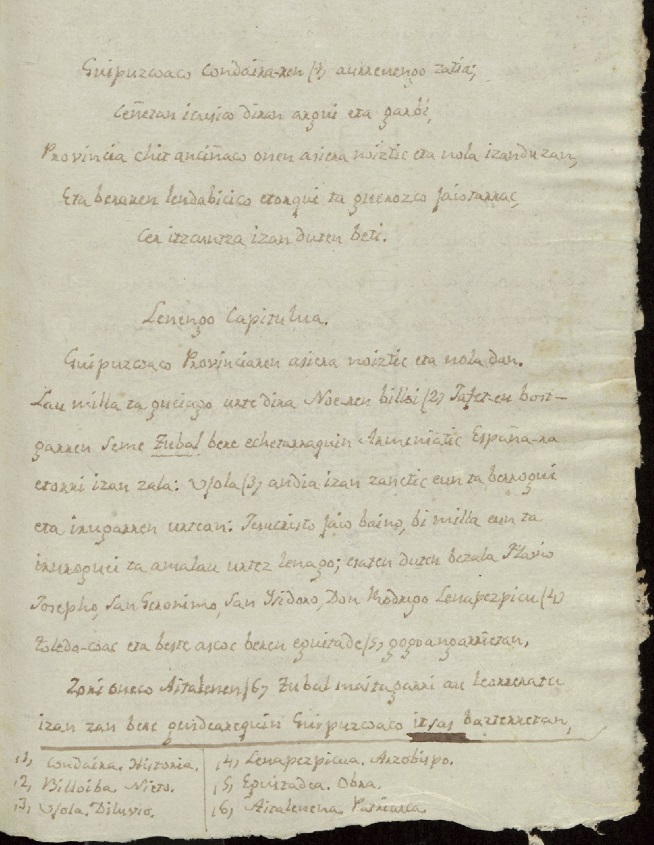 Guipuzcoaco Condaira-ren (1) aurrenengo zatia;
Ceñetan icusico diran argui eta garbi,
Provincia chit anciñaco onen asiera noiztic eta nola izanduzan,
Eta beraren lendabicico etorqui ta guerozco jaiotarrac,
Cer itzcuntza izan duten beti.
Lenengo Capitulua.
Guipuzcoaco Provinciaren asiera noiztic eta nola dan.
Lau milla ta gueiago urte dira Noe-ren billoi (2) Jafet-en bost-
garren seme Tubal bere echetarraquin Armeniatic España-ra
etorri izan zala: Ujola (3) andia izan zanetic eun ta berrogui
eta irugarren urtean: Jesucristo jaio baino, bi milla eun ta
iruroguei ta amalau urtez lenago; esaten duten bezala Flavio
Josepho, San Geronimo, San Ysidoro, Don Rodrigo Lenapezpicu (4)
Toledo-coac eta beste ascoc beren eguitade (5) gogoangarrietan,
Zori oneco Aitalenen (6) Tubal maitagarri au leorreratu
izan zan bere guideareguin Guipuzcoaco itsas bazterretan,
(1) Condaira. Historia.
(2) Billoiba. Nieto.
(3) Ujola. Diluvio.
(4) Lenapezpicua. Arzobispo.
(5) Eguitadea. Obra.
(6) Aitalenena. Patriarca.